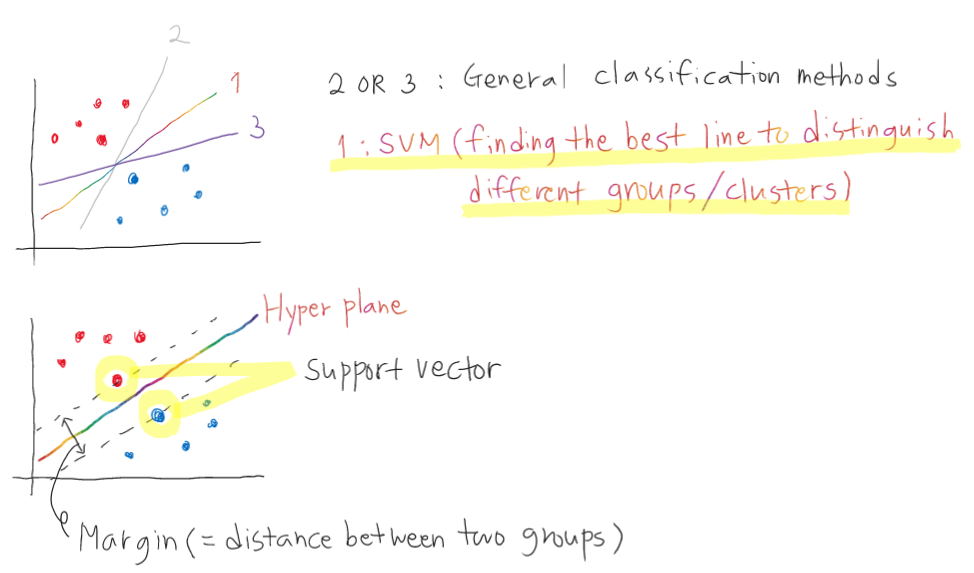 2
1
3
2 OR 3 : General classification methods
1 : SVM (finding the best line to distinguish
different groups/clusters)
Hyper plane
Support vector
Margin (= distance between two groups)